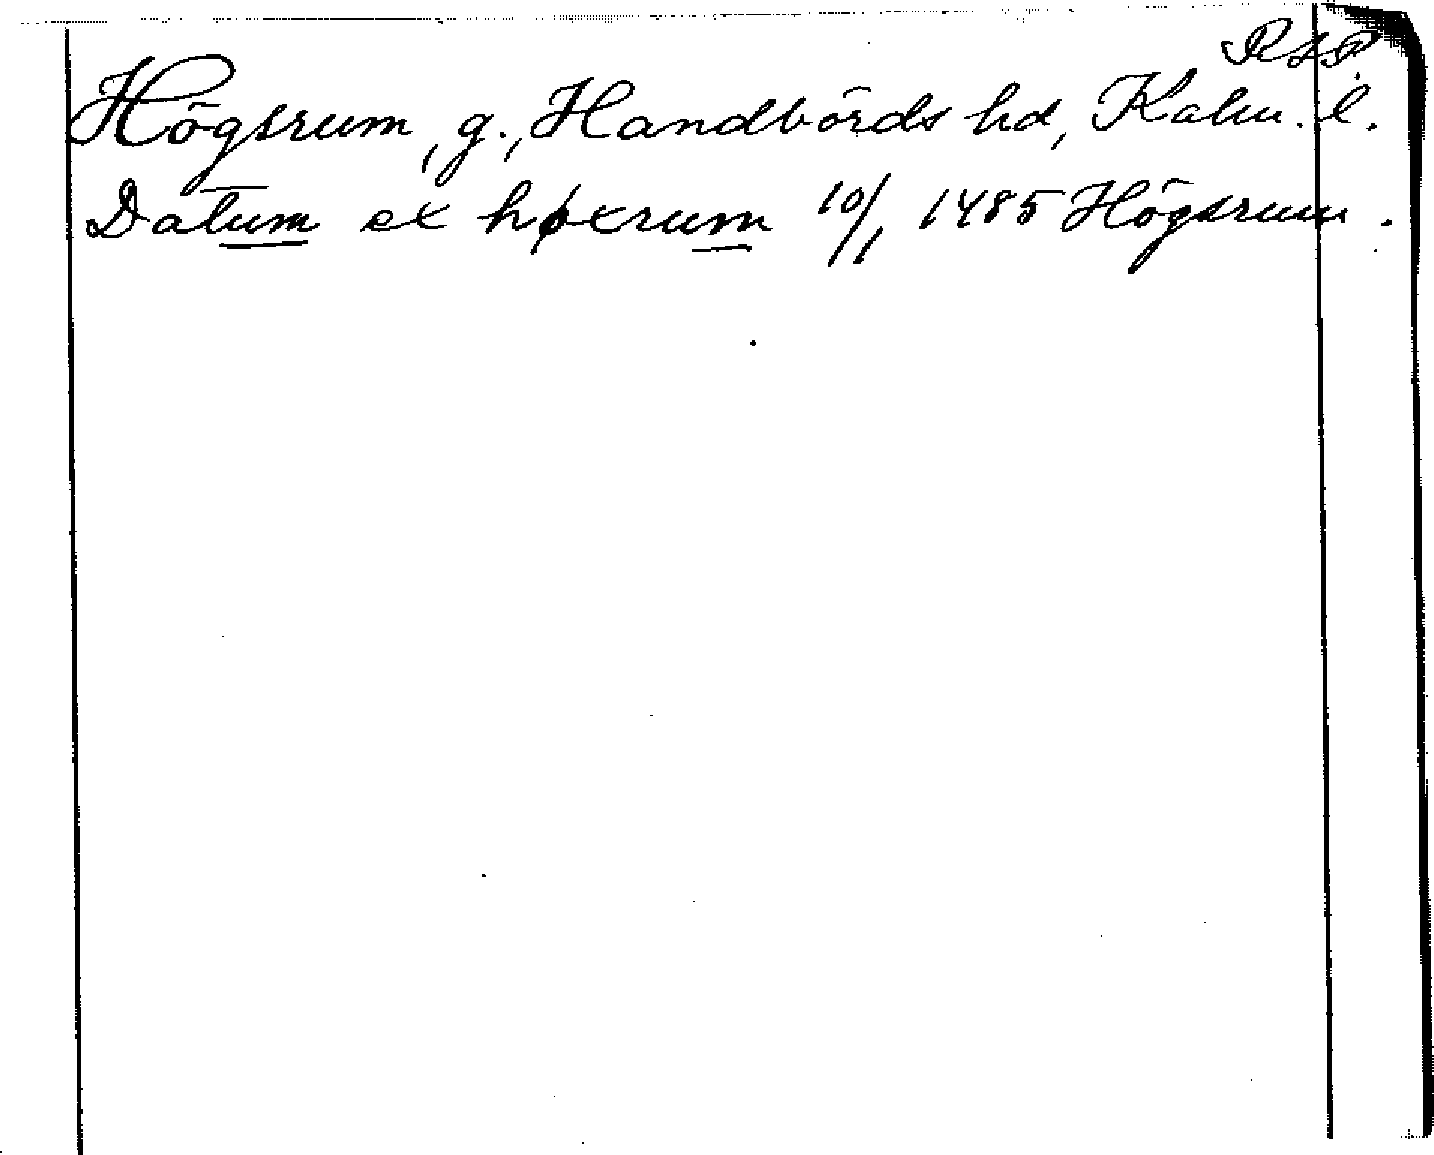 RAP.
Högsrum, g., Handbörds hd, Kalm. l.
Datum ex høxrum 10/1 1485 Högsrum.